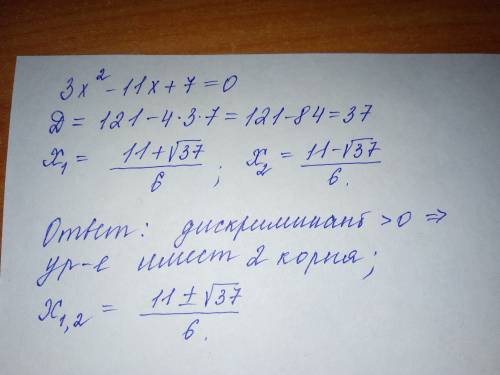 3x² - 11x + 7 = 0
Д = 121 - 4·3·7 = 121 - 84 = 37
x₁ = (11 + √37)/6 ; x₂ = (11 - √37)/6.
Ответ: дискриминант > 0 ⇒
ур-е имеет 2 корня;
x₁,₂ = (11 ± √37)/6.